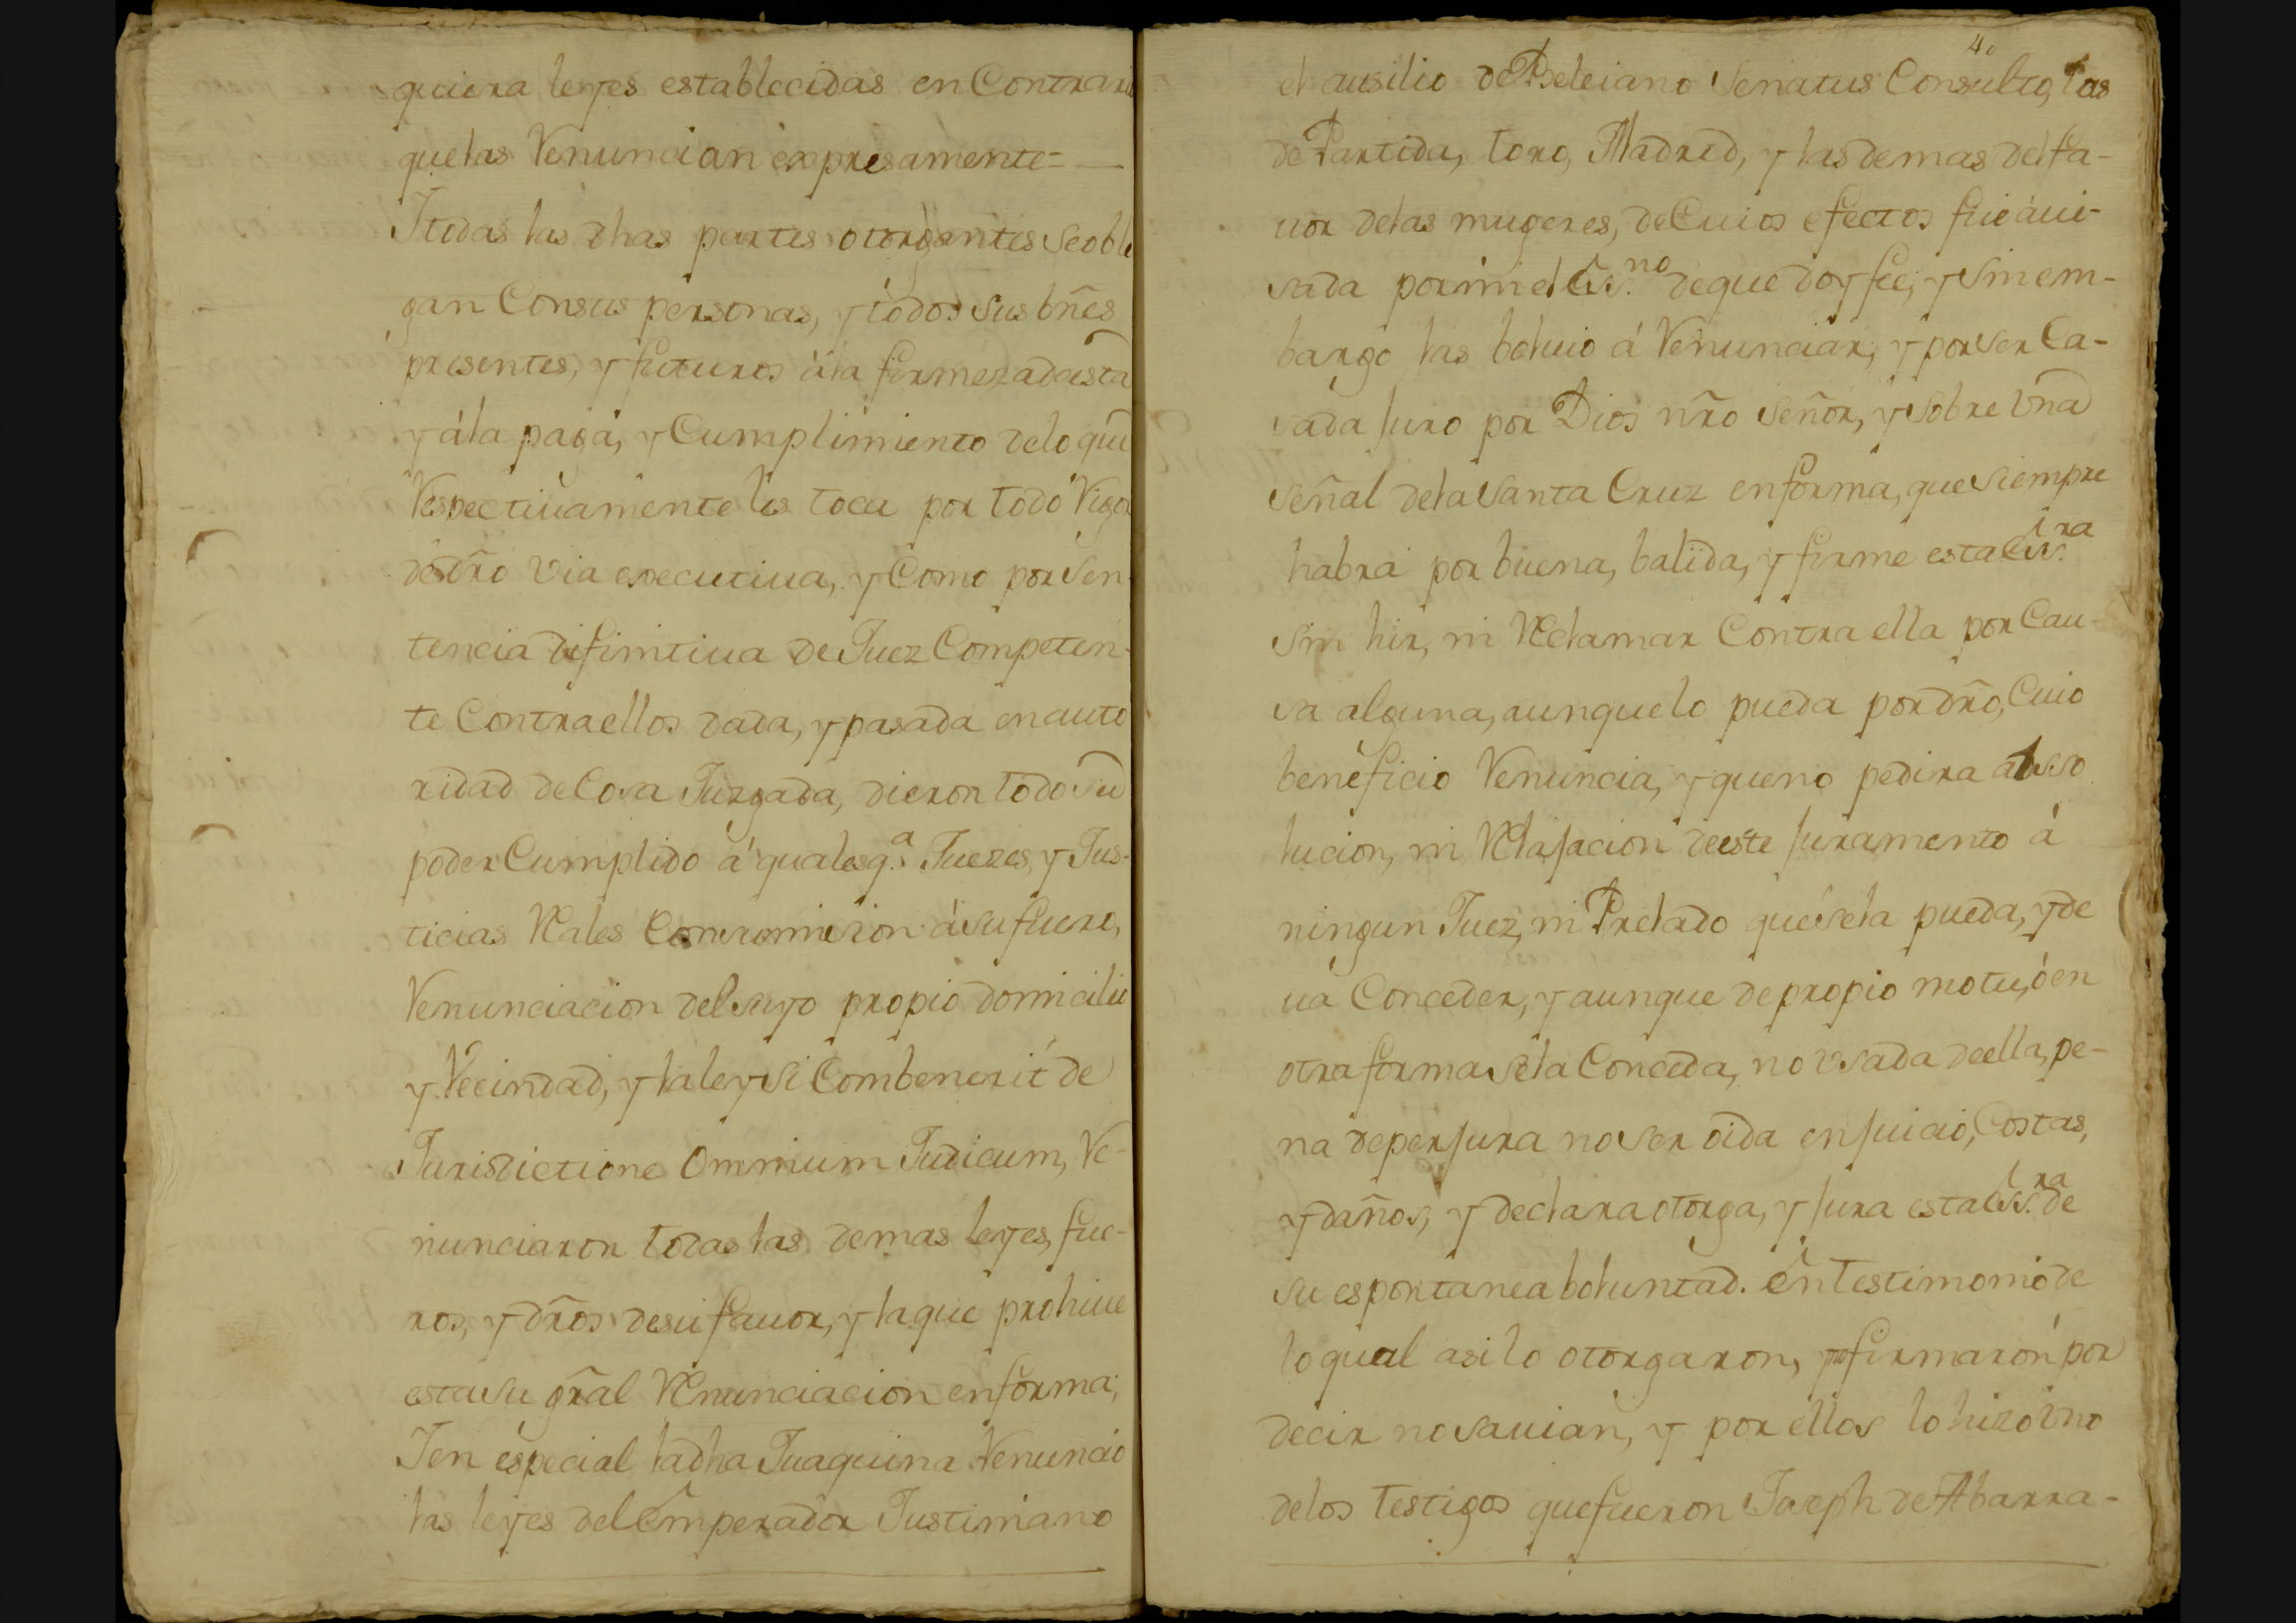 quiera leyes establecidas en Contrari
que las Renuncian expresamente =
Itodas las dhas partes otorgantes se obli
gan Con sus personas, y todos sus bñes
presentes, y futuros á la firmeza de esta
y á la paga, y Cumplimiento de lo que
Respectiuamente les toca por todo Rigor
de dr̃o via executiua, y Como por Sen-
tencia difinitiua de Juez Competen-
te Contra ellos dada, y pasada en auto
ridad de Cosa Juzgada, dieron todo su
poder Cumplido á qualesq.ª Juezes, y Jus-
ticias Reales Con sumision á su fuero,
Renunciacion del suyo propio domicilio
y Vecindad, y la ley si Combenerit de
Jurisdictione Omnium Judicum, Re-
nunciaron todas las demas leyes, fue-
ros, y dr̃os de su fauor, y la que prohiue
esta su gr̃al Renunciacion en forma;
I en especial la dha Juaquina Renuncio
las leyes del Emperador Justiniano
40
el ausilio de Beleiano Senatus Consulto, las
de Partida, toro, Madrid, y las demas del fa-
uor de las mugeres, de Cuios efectos fue áui-
sada por mi el Es.no de que doy fee, y sin em-
bargo las boluio á Renunciar, y por ser Ca-
sada juro por Dios nr̃o Señor, y sobre Vna
señal de la Santa Cruz en forma, que siempre
habra por buena, balida, y firme esta Es.ra
sin hir, ni Reclamar Contra ella por Cau-
sa alguna, aunque lo pueda por dr̃o, Cuio
beneficio Renuncia, y que no pedira abso
lucion, ni Relajacion de este juramento á
ningun Juez, ni Prelado que se la pueda, y de
ua Conceder, y aunque de propio motu, ó en
otra forma se la Conceda, no vsada de ella, pe-
na de perjura no ser oida en juicio, Costas,
y daños, y declara otorga, y jura esta Es.ra de
su espontanea boluntad. En testimonio de
lo qual asi lo otorgaron, no firmaron por
decir no sauian, y por ellos lo hizo vno
de los testigos que fueron Joseph de Abarra-